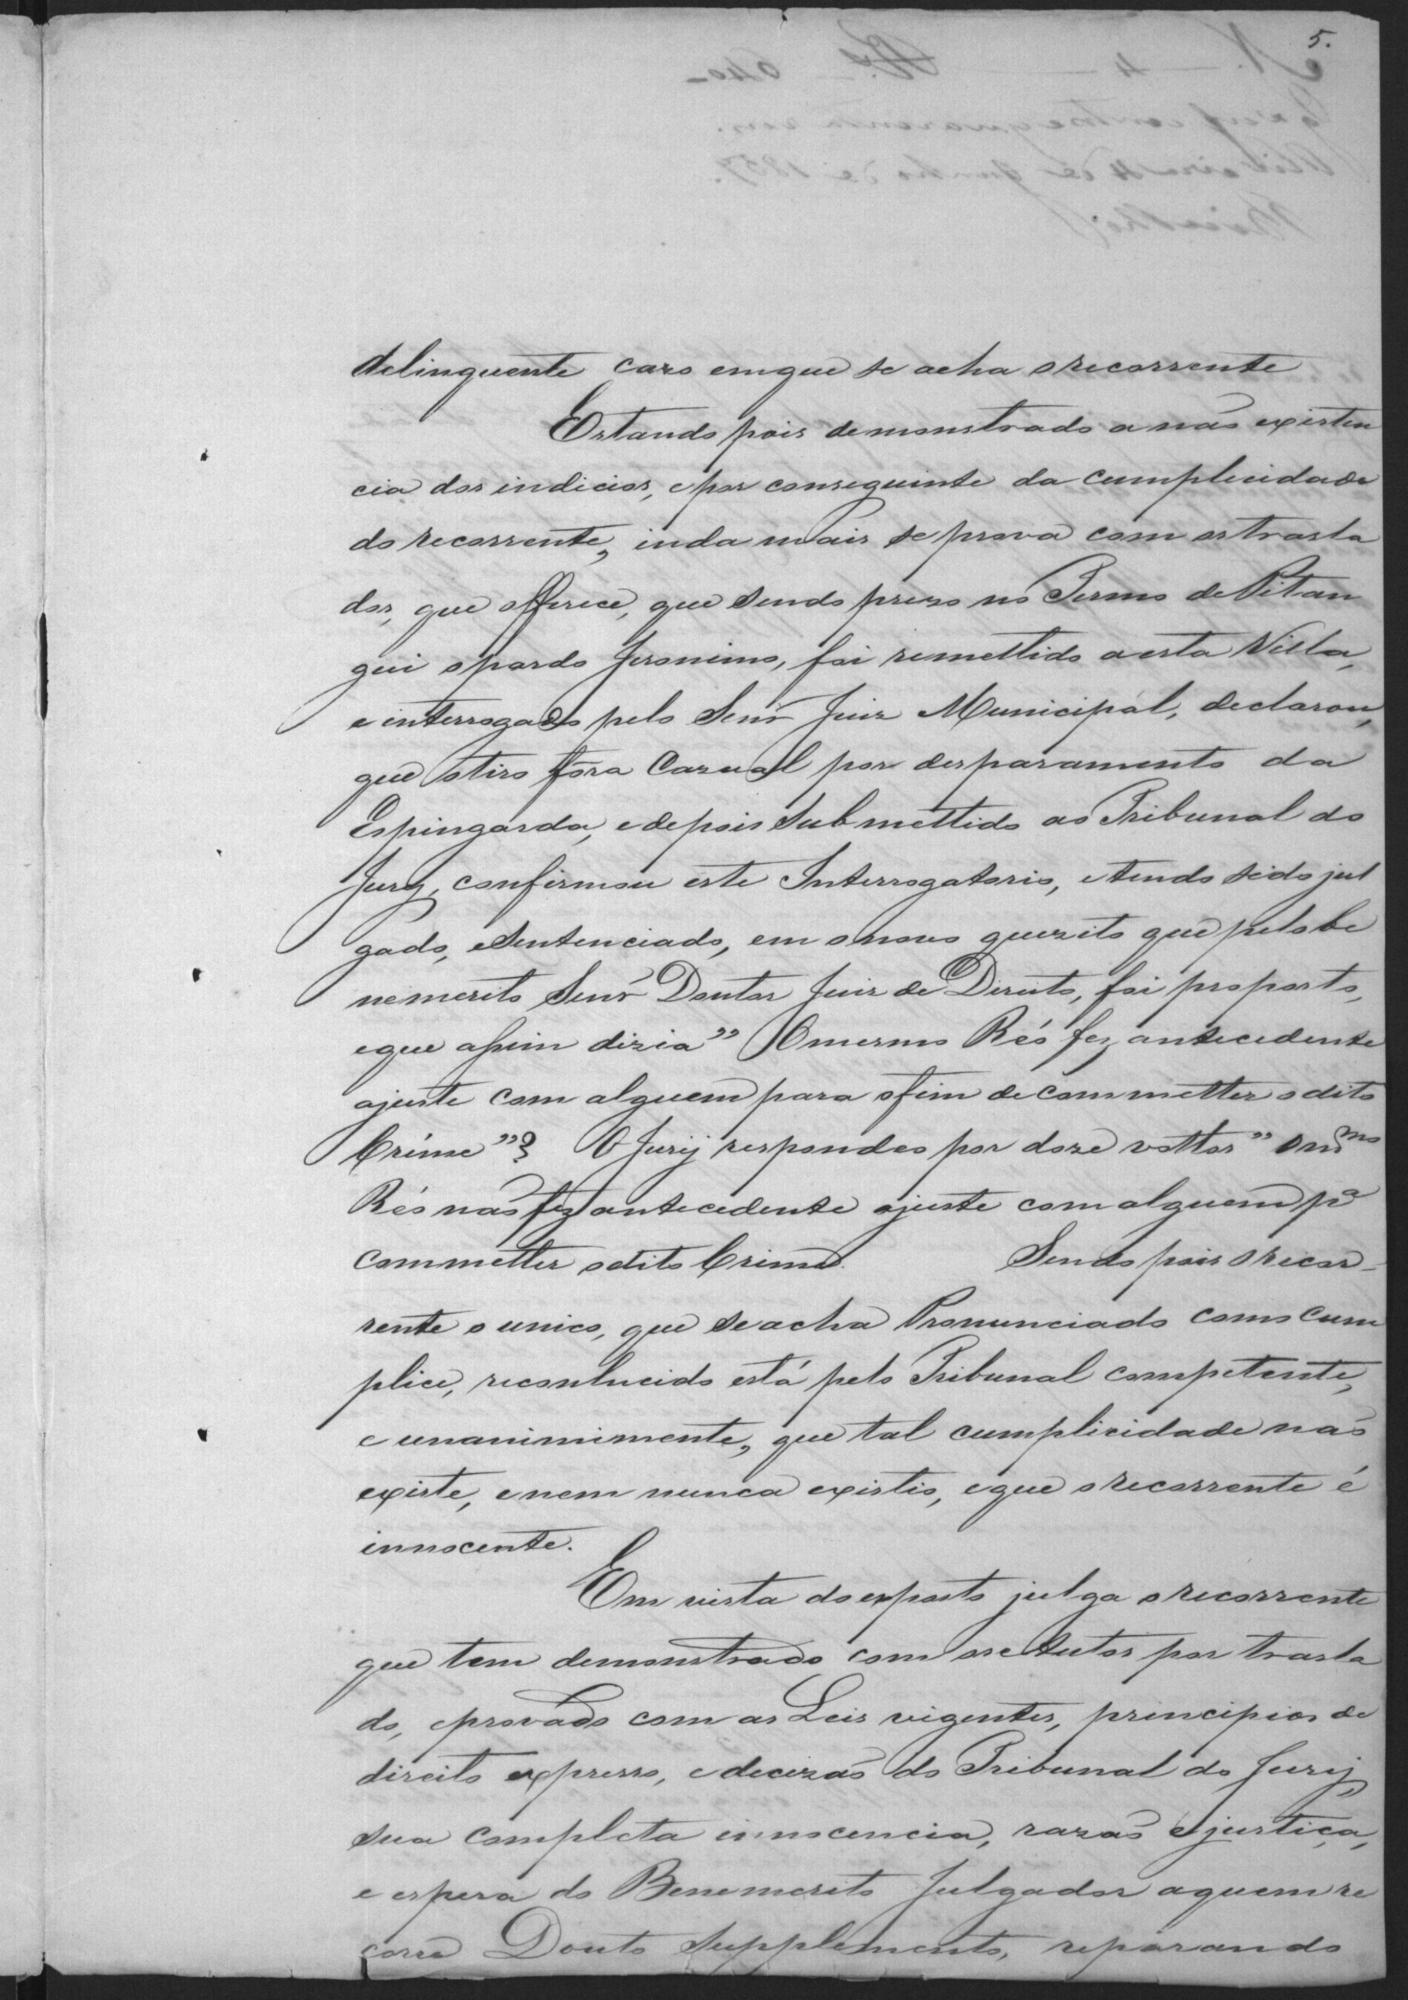 5.
delinquente cazo emque se acha o recorrente
Estando pois demonstrado a não existen
cia dos indicios, e por conseguinte da cumplicidade
do recorrente, inda mais se prova com os trasla
dos, que offerece, que sendo prezo no Termo de Pitan
gui o pardo Jeronimo, foi remettido a esta Villa,
e interrogado pelo Senr Juiz Municipál, declarou,
que o tiro fôra Cazual por desparamento da
Espingarda, e depois Submettido ao Tribunal do
Jury, confirmou este Interrogatorio, e tendo sido jul
gado, e Sentenciado, em o nono quezito que pelo be
nemerito Senr Doutor Juiz de Direito, foi proposto,
e que assim dizia" O mesmo Réo fez antecedente
ajuste com alguem para o fim de commetter o dito
Crime"? O Jury respondeo por doze vottos" O mmo
Réo não fez antecedente ajuste com alguem pa
commetter o dito Crime. Sendo pois o recor-
rente o unico, que se acha Pronunciado como cum
plice, reconhecido está pelo Tribunal competente,
e unanimimente, que tal cumplicidade não
existe, e nem nunca existio, e que o recorrente é
innocente.
Em vista do exposto julga o recorrente
que tem demonstrado com os Autos por trasla
do, e provado com as Leis vigentes, principios de
direito expresso, e decizão do Tribunal do Jury,
sua completa innocencia, razão e justiça,
e espera do Benemerito Julgador a quem re
corre Douto Supplemento, reparando